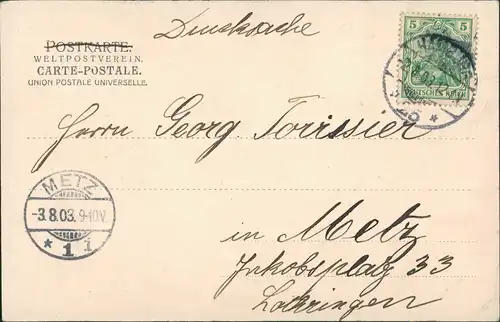 Drucksache
POSTKARTE.
WELTPOSTVEREIN.
CARTE-POSTALE.
UNION POSTALE UNIVERSELLE.
5 5
DEUTSCHES REICH
Herrn Georg Torissier
METZ
-3.8.03. 9-10V.
* 1 i
in Metz
Jakobsplatz 33
Lothringen